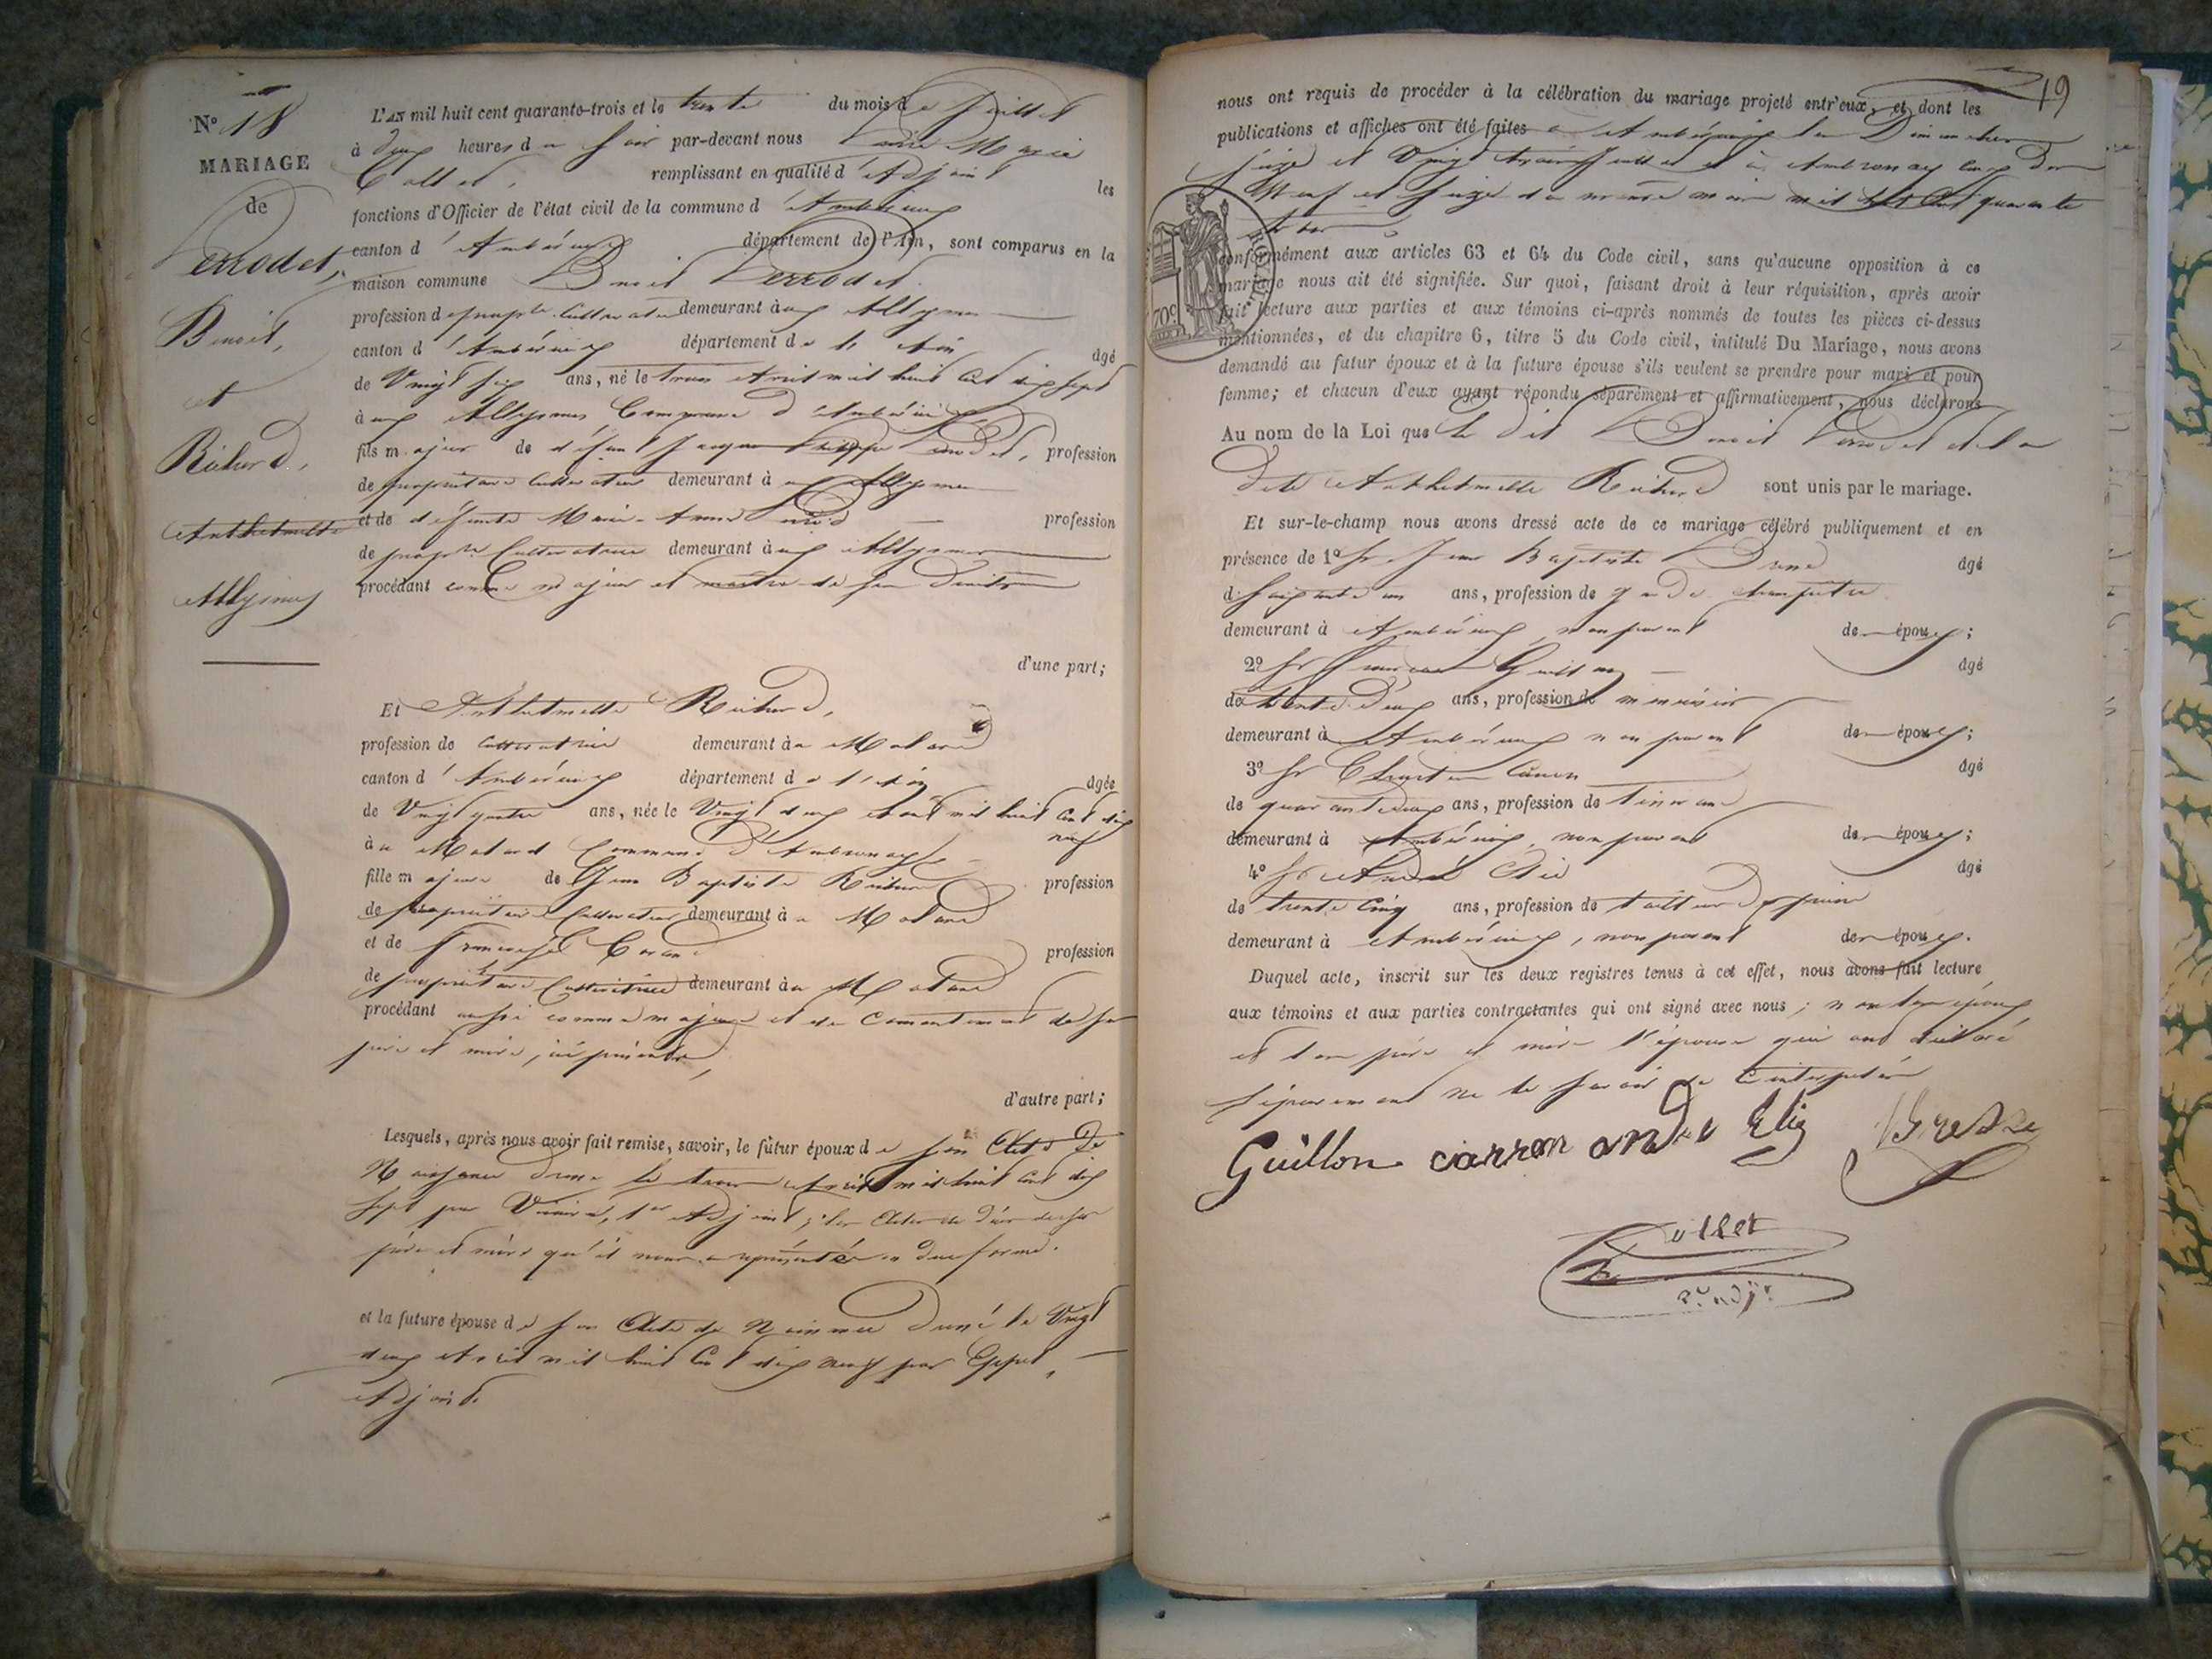 N° 18
MARIAGE
de
Verrodet,
Benoit,
et
Richard,
Anthelmette
Allymes
L'AN mil huit cent quarante-trois et le trente du mois de Juillet
à deux heures du soir par-devant nous Marie
Collet, remplissant en qualité d'Adjoint les
fonctions d'Officier de l'état civil de la commune d'Ambérieux
canton d'Ambérieux département de l'Ain, sont comparus en la
maison commune Benoit Verrodet
profession de propre Cultivateur demeurant aux Allymes
canton d'Ambérieux département de l'Ain âgé
de Vingt six ans, né le trois Avril mil huit Cent dix sept
à aux Allymes Commune d'Ambérieux
fils majeur de défunt Jacques Verrodet, profession
de propriétaire Cultivateur demeurant à aux Allymes
et de défunte Marie-Anne profession
de propre Cultivatrice demeurant à aux Allymes
procédant comme majeur et maître de ses droits
d'une part;
Et Anthelmette Richard,
profession de Cultivatrice demeurant à
canton d'Ambérieux département de l'Ain âgée
de Vingt quatre ans, née le Vingt deux Avril mil huit Cent dix
neuf
à Commune d'Ambronay
fille majeure de Jean Baptiste Richard profession
de propriétaire Cultivateur demeurant à
et de profession
de propriétaire Cultivatrice demeurant à
procédant aussi comme majeure et du Consentement de ses
père et mère, ici présents,
d'autre part;
Lesquels, après nous avoir fait remise, savoir, le futur époux de son Acte de
Naissance dressé le trois Avril mil huit Cent dix
sept par 1er Adjoint; les Actes de décès de ses
père et mère qu'il nous a représentés en due forme.
et la future épouse de son Acte de Naissance dressé le Vingt
deux Avril mil huit Cent dix neuf par
Adjoint.
19
nous ont requis de procéder à la célébration du mariage projeté entr'eux, et dont les
publications et affiches ont été faites à Ambérieux les Dimanches
seize et Vingt trois Juillet et à Ambronay les
Neuf et seize du même mois mil huit Cent quarante
trois
70c
conformément aux articles 63 et 64 du Code civil, sans qu'aucune opposition à ce
mariage nous ait été signifiée. Sur quoi, faisant droit à leur réquisition, après avoir
fait lecture aux parties et aux témoins ci-après nommés de toutes les pièces ci-dessus
mentionnées, et du chapitre 6, titre 5 du Code civil, intitulé Du Mariage, nous avons
demandé au futur époux et à la future épouse s'ils veulent se prendre pour mari et pour
femme; et chacun d'eux ayant répondu séparément et affirmativement, nous déclarons
Au nom de la Loi que le dit Benoit Verrodet et la
dite Anthelmette Richard sont unis par le mariage.
Et sur-le-champ nous avons dressé acte de ce mariage célébré publiquement et en
présence de 1° Sr Jean Baptiste âgé
de soixante un ans, profession de garde champêtre
demeurant à Ambérieux, non parent des époux;
2° Sr Guillon âgé
de trente deux ans, profession de menuisier
demeurant à Ambérieux non parent des époux;
3° Sr âgé
de quarante deux ans, profession de
demeurant à Ambérieux, non parent des époux;
4° Sr André âgé
de trente Cinq ans, profession de tailleur de pierre
demeurant à Ambérieux, non parent des époux.
Duquel acte, inscrit sur les deux registres tenus à cet effet, nous avons fait lecture
aux témoins et aux parties contractantes qui ont signé avec nous; non les époux
et les père et mère de l'épouse qui ont déclaré
séparément ne le savoir de Ce interpellés
Guillon carron andré Elie
Collet
2e adjt